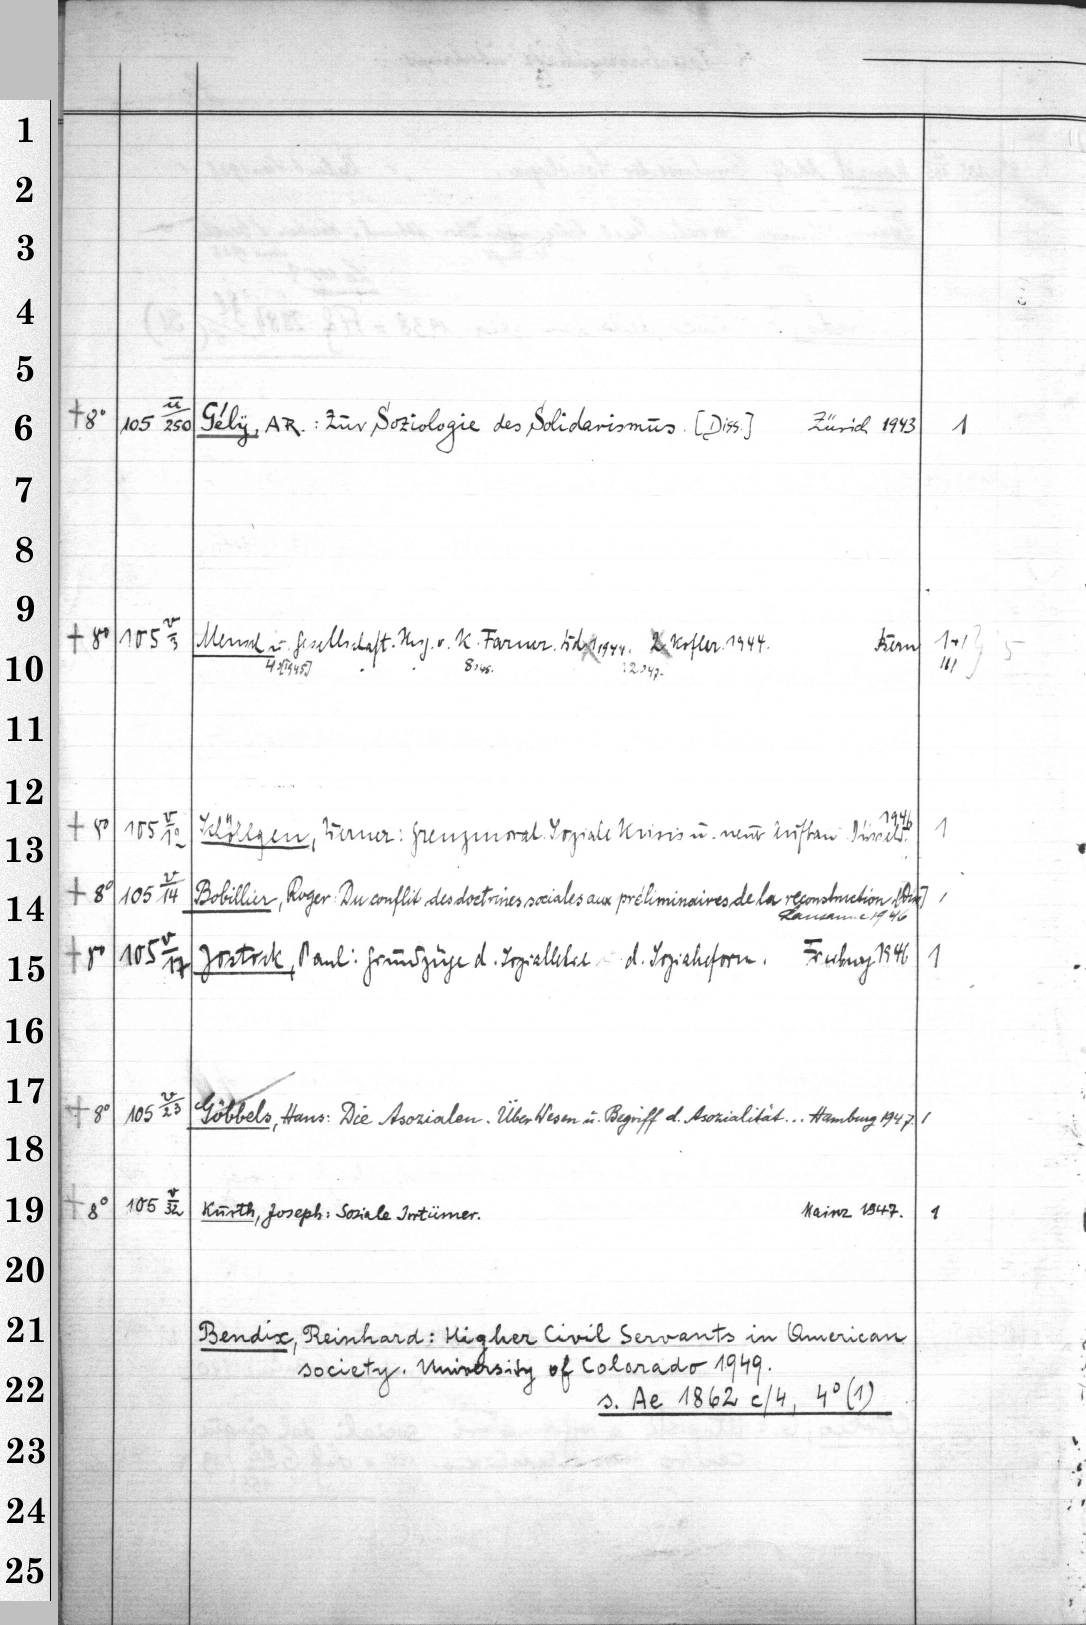 1
2
3
4
5
6 +8° 105 ü/250 Gély, AR.: Zür Soziologie des Solidarismüs. [Diss.] Zürich 1943 1
7
8
9
+8° 105 v/3 Mensch ü. Gesellschaft. Hrsg. v. K. Farner. Bd 1 1944. 2 Kofler. 1944. Bern 1+1
10 4 [1945] 8 1946. 2 1947.
11
12
13 +8° 105 v/12 Schöllgen, Werner: Grenzmoral. Soziale Krisis ü. neür Aufbau. Düsseld. 1946 1
14 +8° 105 v/14 Bobillier, Roger: Du conflit des doctrines sociales aux préliminaires de la reconstruction. [Diss] 1
Lausanne 1946
15 +8° 105 v/17 Jostock, Paul: Gründzüge d. Soziallehre d. Sozialreform. Freiburg 1946 1
16
17
+8° 105 v/23 Göbbels, Hans: Die Asozialen. Über Wesen ü. Begriff d. Asozialität... Hamburg 1947. 1
18
19 +8° 105 v/32 Kürth, Joseph: Soziale Irrtümer. Mainz 1947. 1
20
21 Bendix, Reinhard: Higher Civil Servants in American
society. University of Colorado 1949.
22 s. Ae 1862 c/4, 4° (1)
23
24
25